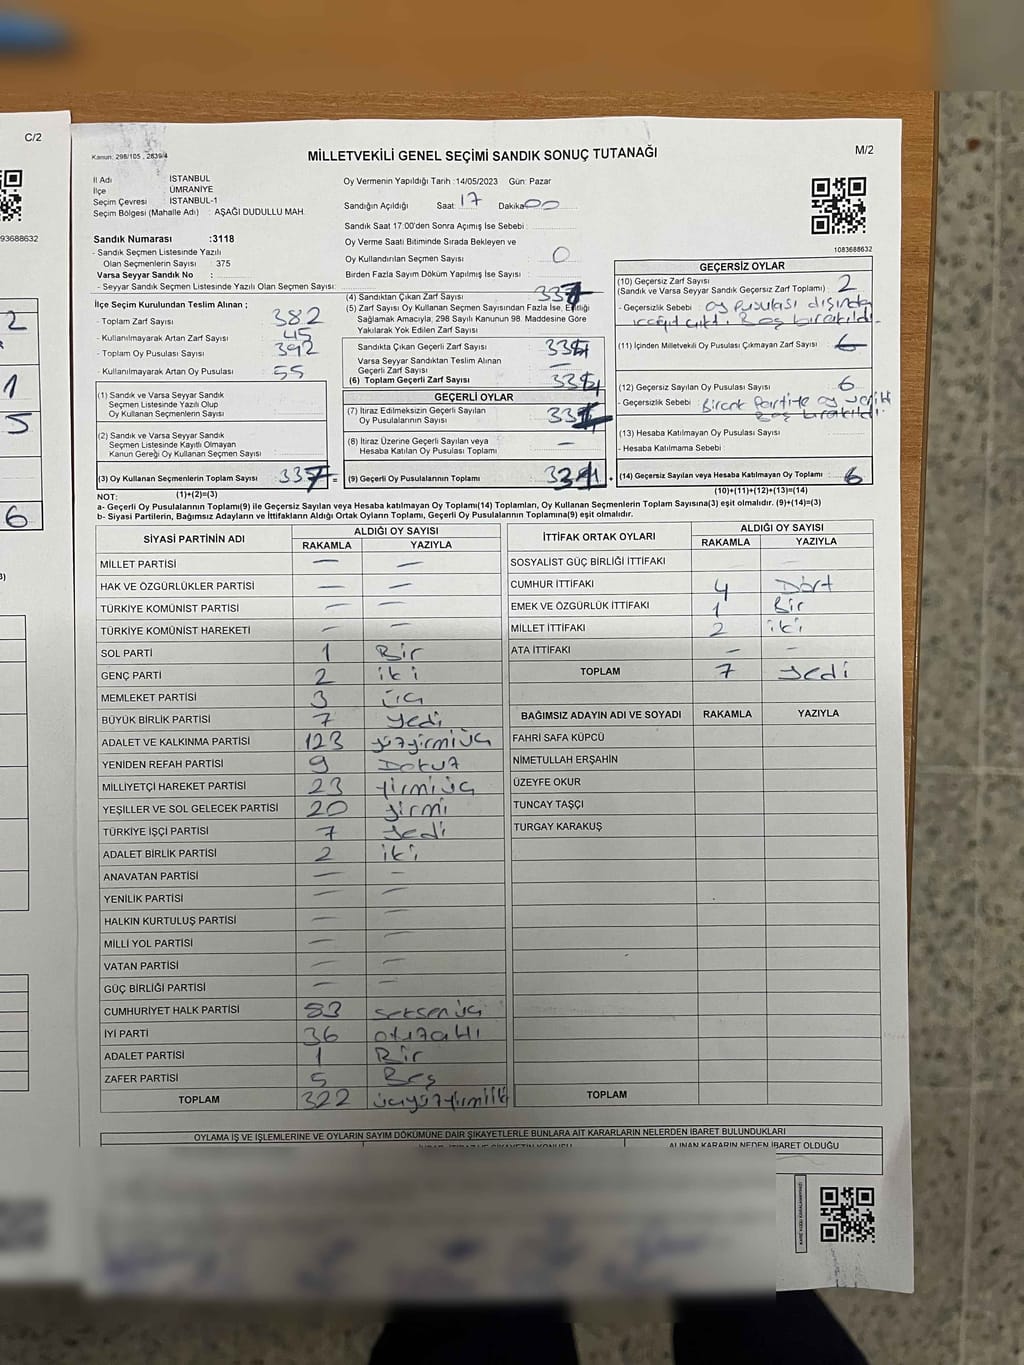 C/2
93688632
2
1
5
6
Kanun: 298/105 , 2839/4
MİLLETVEKİLİ GENEL SEÇİMİ SANDIK SONUÇ TUTANAĞI
M/2
İl Adı İSTANBUL
İlçe ÜMRANİYE
Seçim Çevresi : İSTANBUL-1
Seçim Bölgesi (Mahalle Adı) : AŞAĞI DUDULLU MAH.
Sandık Numarası :3118
- Sandık Seçmen Listesinde Yazılı
Olan Seçmenlerin Sayısı : 375
Varsa Seyyar Sandık No :
- Seyyar Sandık Seçmen Listesinde Yazılı Olan Seçmen Sayısı:
Oy Vermenin Yapıldığı Tarih :14/05/2023 Gün: Pazar
Sandığın Açıldığı Saat: 17 Dakika: 00
Sandık Saat 17:00'den Sonra Açımış İse Sebebi :
Oy Verme Saati Bitiminde Sırada Bekleyen ve
Oy Kullandırılan Seçmen Sayısı : 0
Birden Fazla Sayım Döküm Yapılmış İse Sayısı :
1083688632
İlçe Seçim Kurulundan Teslim Alınan ;
- Toplam Zarf Sayısı : 382
- Kullanılmayarak Artan Zarf Sayısı : 45
- Toplam Oy Pusulası Sayısı : 392
- Kullanılmayarak Artan Oy Pusulası : 55
(1) Sandık ve Varsa Seyyar Sandık
Seçmen Listesinde Yazılı Olup
Oy Kullanan Seçmenlerin Sayısı :
(2) Sandık ve Varsa Seyyar Sandık
Seçmen Listesinde Kayıtlı Olmayan
Kanun Gereği Oy Kullanan Seçmen Sayısı :
(3) Oy Kullanan Seçmenlerin Toplam Sayısı : 337 =
(4) Sandıktan Çıkan Zarf Sayısı : 337
(5) Zarf Sayısı Oy Kullanan Seçmen Sayısından Fazla İse, Eşitliği
Sağlamak Amacıyla; 298 Sayılı Kanunun 98. Maddesine Göre
Yakılarak Yok Edilen Zarf Sayısı :
Sandıkta Çıkan Geçerli Zarf Sayısı :
Varsa Seyyar Sandıktan Teslim Alınan
Geçerli Zarf Sayısı : —
(6) Toplam Geçerli Zarf Sayısı :
GEÇERLİ OYLAR
(7) İtiraz Edilmeksizin Geçerli Sayılan
Oy Pusulalarının Sayısı :
(8) İtiraz Üzerine Geçerli Sayılan veya
Hesaba Katılan Oy Pusulası Toplamı : —
(9) Geçerli Oy Pusulalarının Toplamı :
GEÇERSİZ OYLAR
(10) Geçersiz Zarf Sayısı : 2
(Sandık ve Varsa Seyyar Sandık Geçersiz Zarf Toplamı)
- Geçersizlik Sebebi : oy pusulası dışında
kağıt çıktı. Boş bırakıldı.
(11) İçinden Milletvekili Oy Pusulası Çıkmayan Zarf Sayısı:
(12) Geçersiz Sayılan Oy Pusulası Sayısı : 6
- Geçersizlik Sebebi : Boş bırakıldı.
(13) Hesaba Katılmayan Oy Pusulası Sayısı :
- Hesaba Katılmama Sebebi :
(14) Geçersiz Sayılan veya Hesaba Katılmayan Oy Toplamı : 6
NOT: (1)+(2)=(3) (10)+(11)+(12)+(13)=(14)
a- Geçerli Oy Pusulalarının Toplamı(9) ile Geçersiz Sayılan veya Hesaba Katılmayan Oy Toplamı(14) Toplamları, Oy Kullanan Seçmenlerin Toplam Sayısına(3) eşit olmalıdır. (9)+(14)=(3)
b- Siyasi Partilerin, Bağımsız Adayların ve İttifakların Aldığı Ortak Oyların Toplamı, Geçerli Oy Pusulalarının Toplamına(9) eşit olmalıdır.
SİYASİ PARTİNİN ADI ALDIĞI OY SAYISI
RAKAMLA YAZIYLA
MİLLET PARTİSİ — —
HAK VE ÖZGÜRLÜKLER PARTİSİ — —
TÜRKİYE KOMÜNİST PARTİSİ — —
TÜRKİYE KOMÜNİST HAREKETİ — —
SOL PARTİ 1 Bir
GENÇ PARTİ 2 iki
MEMLEKET PARTİSİ 3 üç
BÜYÜK BİRLİK PARTİSİ 7 yedi
ADALET VE KALKINMA PARTİSİ 123 yüzyirmiüç
YENİDEN REFAH PARTİSİ 9 Dokuz
MİLLİYETÇİ HAREKET PARTİSİ 23 yirmiüç
YEŞİLLER VE SOL GELECEK PARTİSİ 20 yirmi
TÜRKİYE İŞÇİ PARTİSİ 7 yedi
ADALET BİRLİK PARTİSİ 2 iki
ANAVATAN PARTİSİ — —
YENİLİK PARTİSİ — —
HALKIN KURTULUŞ PARTİSİ — —
MİLLİ YOL PARTİSİ — —
VATAN PARTİSİ — —
GÜÇ BİRLİĞİ PARTİSİ — —
CUMHURİYET HALK PARTİSİ 83 seksenüç
İYİ PARTİ 36 otuzaltı
ADALET PARTİSİ 1 Bir
ZAFER PARTİSİ 5 Beş
TOPLAM 322 üçyüzyirmiiki
İTTİFAK ORTAK OYLARI ALDIĞI OY SAYISI
RAKAMLA YAZIYLA
SOSYALİST GÜÇ BİRLİĞİ İTTİFAKI
CUMHUR İTTİFAKI 4 Dört
EMEK VE ÖZGÜRLÜK İTTİFAKI 1 Bir
MİLLET İTTİFAKI 2 iki
ATA İTTİFAKI — —
TOPLAM 7 yedi
BAĞIMSIZ ADAYIN ADI VE SOYADI RAKAMLA YAZIYLA
FAHRİ SAFA KÜPCÜ
NİMETULLAH ERŞAHİN
ÜZEYFE OKUR
TUNCAY TAŞÇI
TURGAY KARAKUŞ
TOPLAM
OYLAMA İŞ VE İŞLEMLERİNE VE OYLARIN SAYIM DÖKÜMÜNE DAİR ŞİKAYETLERLE BUNLARA AİT KARARLARIN NELERDEN İBARET BULUNDUKLARI
ALINAN KARARIN NEDEN İBARET OLDUĞU